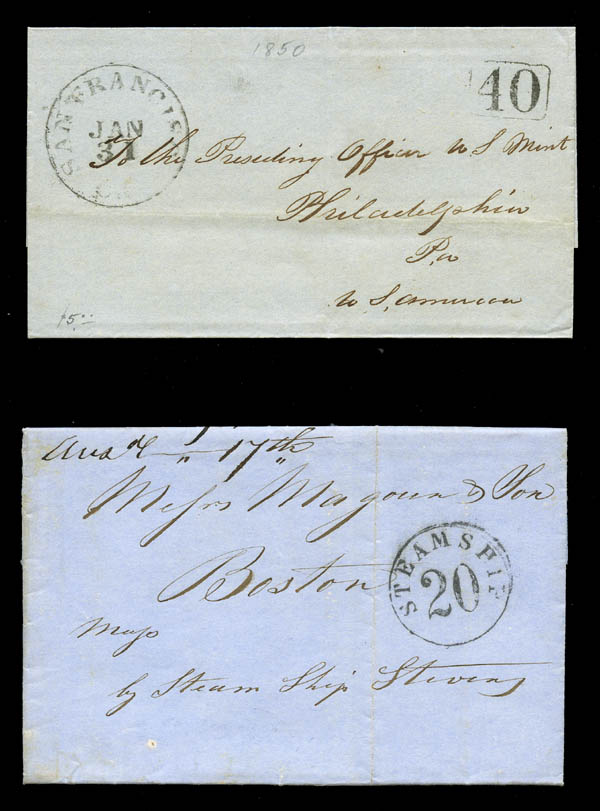 1850
SAN FRANCISC
JAN
31
40
To the Presiding Officer U S Mint
Philadelphia
Pa
U S, America
" 17th
Messrs Magoun & Son
Boston
Mass
STEAMSHIP
20
by Steam Ship Stevens